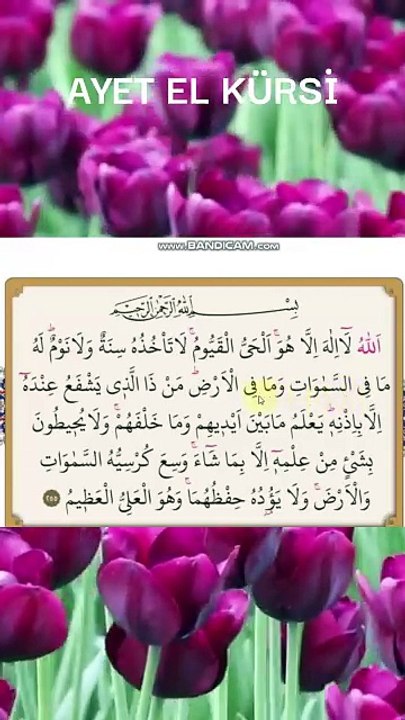 AYET EL KÜRSİ
www.BANDICAM.com
بِسْــــــمِ اللّٰهِ الرَّحْمٰنِ الرَّح۪يمِ
اَللّٰهُ لَٓا اِلٰهَ اِلَّا هُوَۚ اَلْحَيُّ الْقَيُّومُۚ لَا تَأْخُذُهُ سِنَةٌ وَلَا نَوْمٌۜ لَهُ
مَا فِي السَّمٰوَاتِ وَمَا فِي الْاَرْضِۜ مَنْ ذَا الَّذ۪ي يَشْفَعُ عِنْدَهُٓ
اِلَّا بِاِذْنِه۪ۜ يَعْلَمُ مَا بَيْنَ اَيْد۪يهِمْ وَمَا خَلْفَهُمْۚ وَلَا يُح۪يطُونَ
بِشَيْءٍ مِنْ عِلْمِه۪ٓ اِلَّا بِمَا شَٓاءَۚ وَسِعَ كُرْسِيُّهُ السَّمٰوَاتِ
وَالْاَرْضَۚ وَلَا يَؤُ۫دُهُ حِفْظُهُمَاۚ وَهُوَ الْعَلِيُّ الْعَظ۪يمُ ٢٥٥